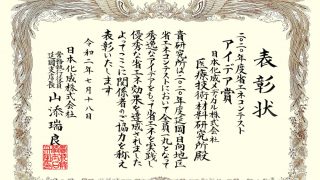 表彰状
二〇二〇年度省エネコンテスト
アイデア賞
日本化成メデカル株式会社
医療技術材料研究所殿
貴研究所は二〇二〇年度延岡・日向地区
省エネコンテストにおいて全員一丸となって
秀逸なアイデアをもって省エネを実践し
優秀な省エネ効果を達成されました
よってここに関係者のご協力を称え
表彰いたします
令和二年七月十八日
日本化成株式会社
常務執行役員
延岡支店長
山添瑞良